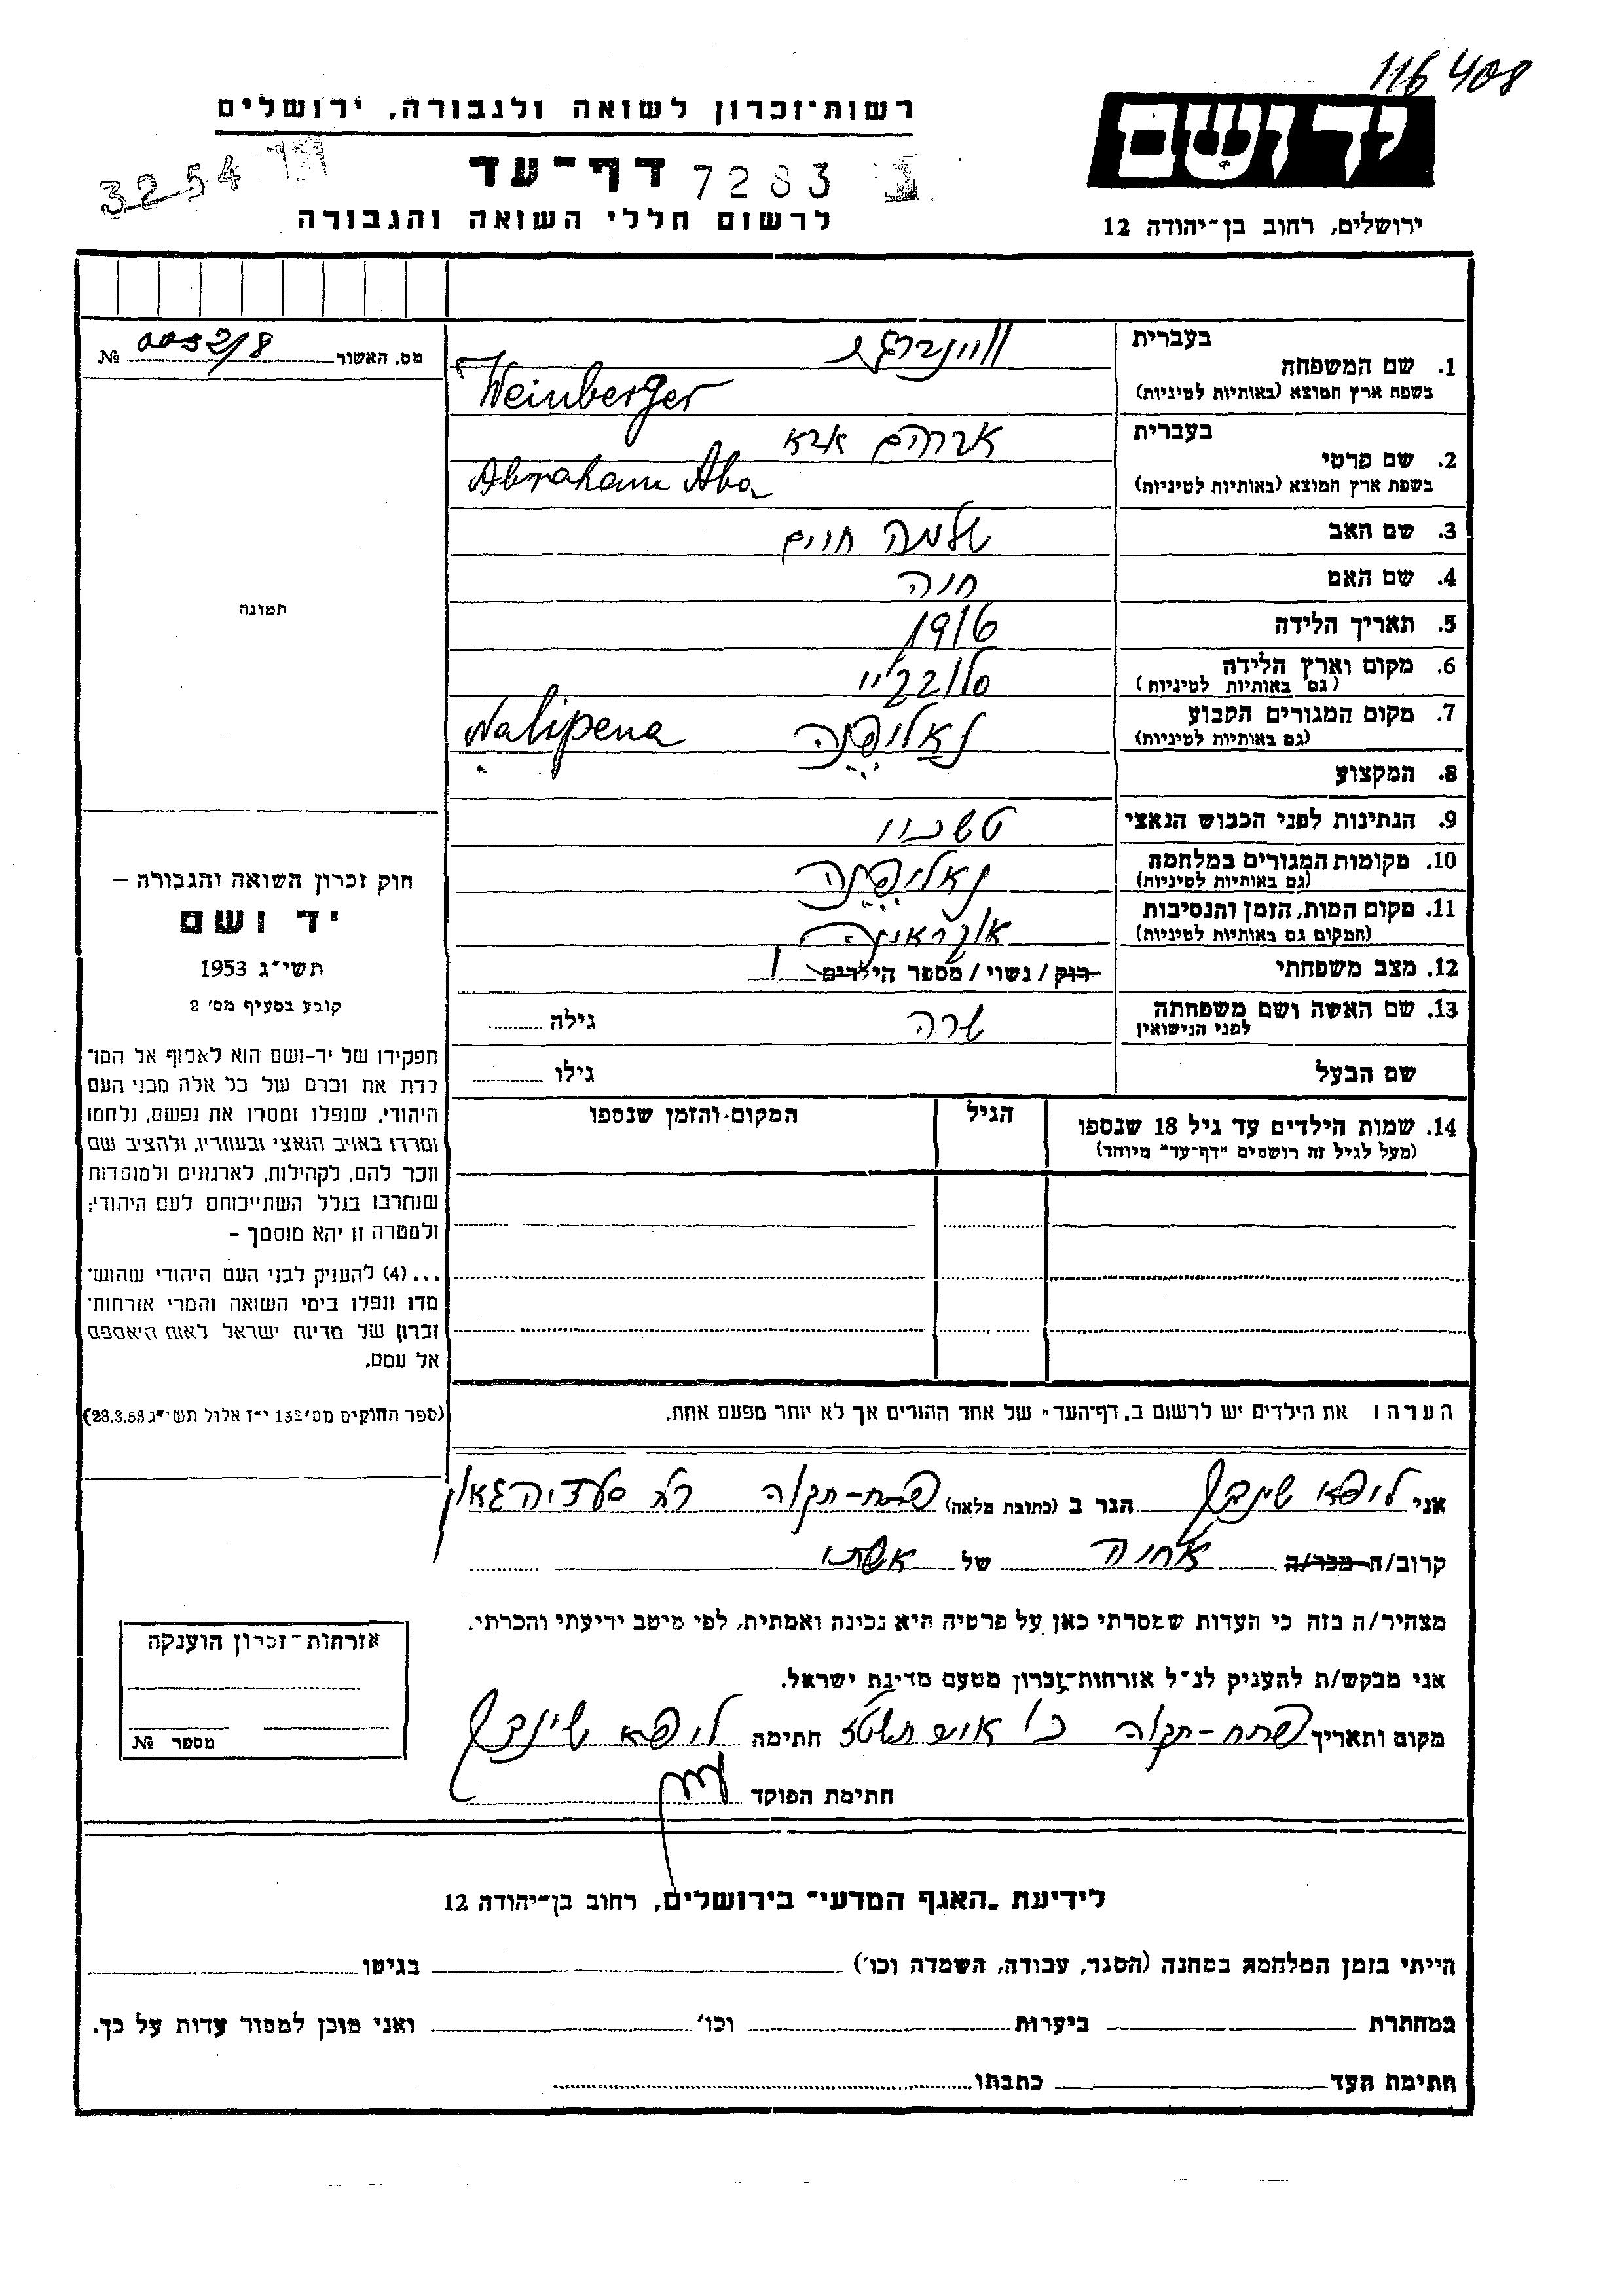 116408
יד ושם
ירושלים, רחוב בן־יהודה 12
רשות־זכרון לשואה ולגבורה, ירושלים
דף־עד 7283
3254
לרשום חללי השואה והגבורה
מס. האשור 0032/8 №
בעברית
1. שם המשפחה ווינברגר
בשפת ארץ המוצא (באותיות לטיניות) Weinberger
בעברית
2. שם פרטי אברהם אבא
בשפת ארץ המוצא (באותיות לטיניות) Abraham Aba
3. שם האב שלמה חיים
4. שם האם חנה
5. תאריך הלידה 1916
6. מקום וארץ הלידה
(גם באותיות לטיניות)
7. מקום המגורים הקבוע נאליפנה Nalipena
(גם באותיות לטיניות)
8. המקצוע
9. הנתינות לפני הכבוש הנאצי
10. מקומות המגורים במלחמה נאליפנה
(גם באותיות לטיניות)
11. מקום המות, הזמן והנסיבות אוקראינה
(המקום גם באותיות לטיניות)
12. מצב משפחתי רוק / נשוי / מספר הילדים 1
13. שם האשה ושם משפחתה שרה גילה
לפני הנישואין
שם הבעל גילו
14. שמות הילדים עד גיל 18 שנספו הגיל המקום והזמן שנספו
(מעל לגיל זה רושמים "דף־עד" מיוחד)
הערה: את הילדים יש לרשום ב"דף־העד" של אחד ההורים אך לא יותר מפעם אחת.
תמונה
חוק זכרון השואה והגבורה –
יד ושם
תשי"ג 1953
קובע בסעיף מס' 2
תפקידו של יד-ושם הוא לאסוף אל המו־
לדת את זכרם של כל אלה מבני העם
היהודי, שנפלו ומסרו את נפשם, נלחמו
ומרדו באויב הנאצי ובעוזריו, ולהציב שם
וזכר להם, לקהילות, לארגונים ולמוסדות
שנחרבו בגלל השתייכותם לעם היהודי;
ולמטרה זו יהא מוסמך –
...(4) להעניק לבני העם היהודי שהוש־
מדו ונפלו בימי השואה והמרי אזרחות־
זכרון של מדינת ישראל לאות היאספם
אל עמם.
(ספר החוקים מס' 132 י"ז אלול תשי"ג 28.8.53)
אני ליפא שינבך הגר ב (כתובת מלאה) פתח-תקוה רח סעדיה גאון
קרוב/ה מכר/ה אחיה של אשתו
מצהיר/ה בזה כי העדות שמסרתי כאן על פרטיה היא נכונה ואמתית, לפי מיטב ידיעתי והכרתי.
אני מבקש/ת להעניק לנ"ל אזרחות־זכרון מטעם מדינת ישראל.
מקום ותאריך פתח-תקוה חתימה ליפא שינבך
חתימת הפוקד
אזרחות־זכרון הוענקה
מספר №
לידיעת "האגף המדעי" בירושלים, רחוב בן־יהודה 12
הייתי בזמן המלחמה במחנה (הסגר, עבודה, השמדה וכו') בגיטו
במחתרת ביערות וכו' ואני מוכן למסור עדות על כך.
חתימת העד כתבתו